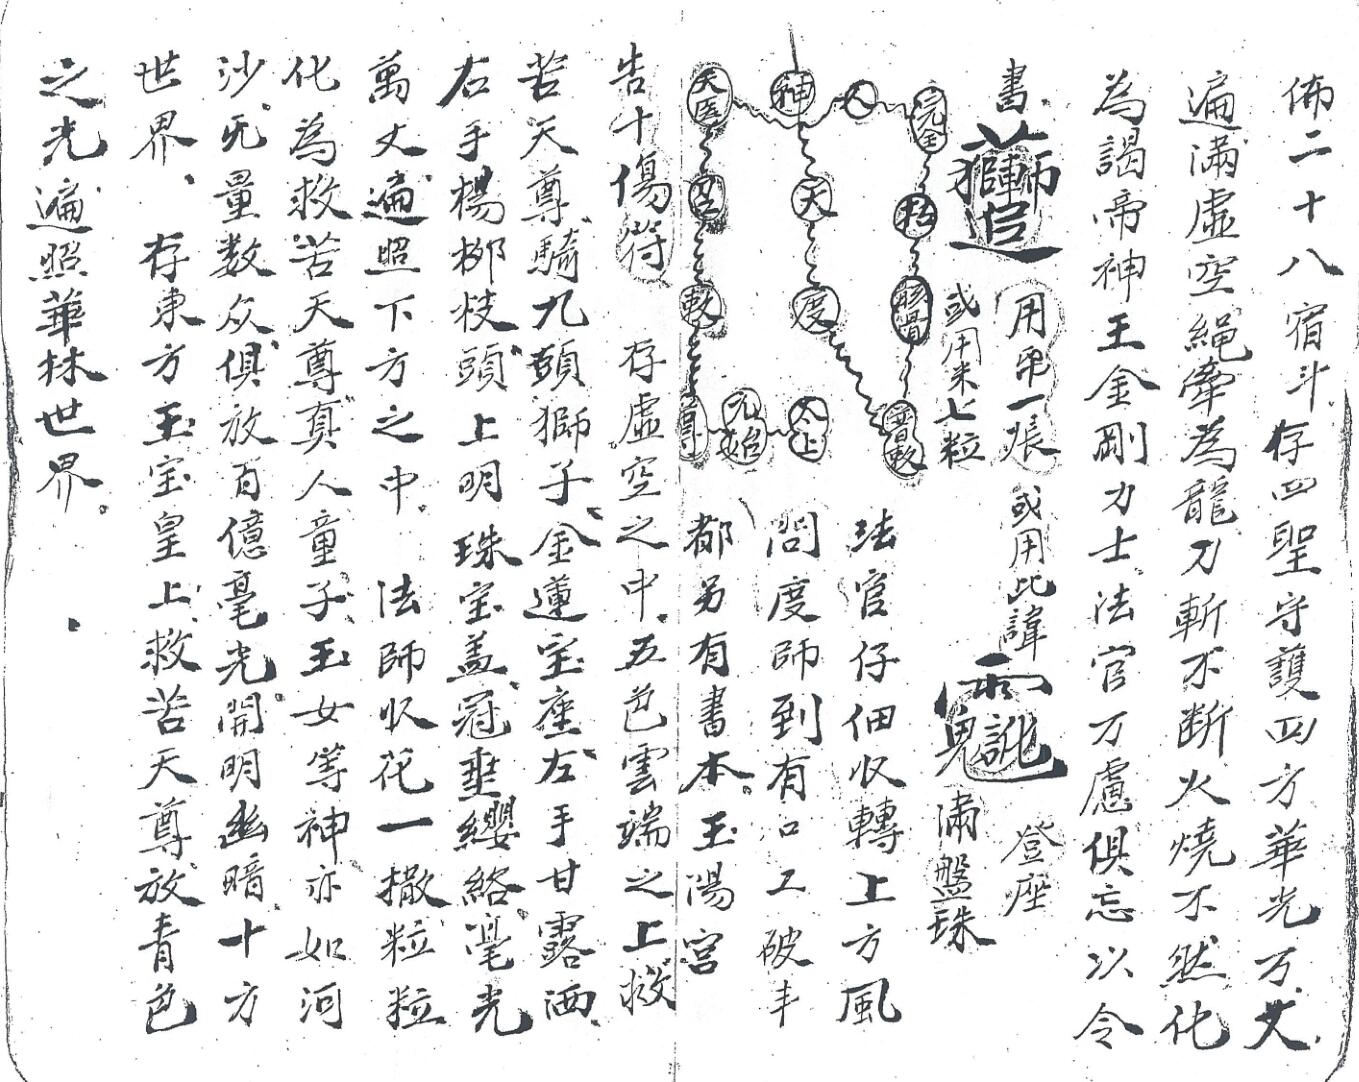 佈二十八宿斗存四聖守護四方華光万丈
遍滿虛空繩牽為龍刀斬不断火燒不然化
為謁帝神王金剛力士法官万慮俱忘以令
書 用帋一張 或用此諱 登座
或用米七粒 满盤珠
法官仔細收轉上方風
問度師到有口工破丰
都另有書本玉陽宮
完全
人
神
天医
天
度
骸骨
普救
救
元始
太上
告十傷符 存虛空之中五色雲端之上救
苦天尊騎九頭獅子金蓮宝座左手甘露洒
右手楊柳枝頭上明珠宝盖冠垂纓絡毫光
萬丈遍照下方之中 法師收花一撒粒粒
化為救苦天尊真人童子玉女等神亦如河
沙无量数众俱放百億毫光開明幽暗十方
世界、存東方玉宝皇上救苦天尊放青色
之光遍照華林世界。